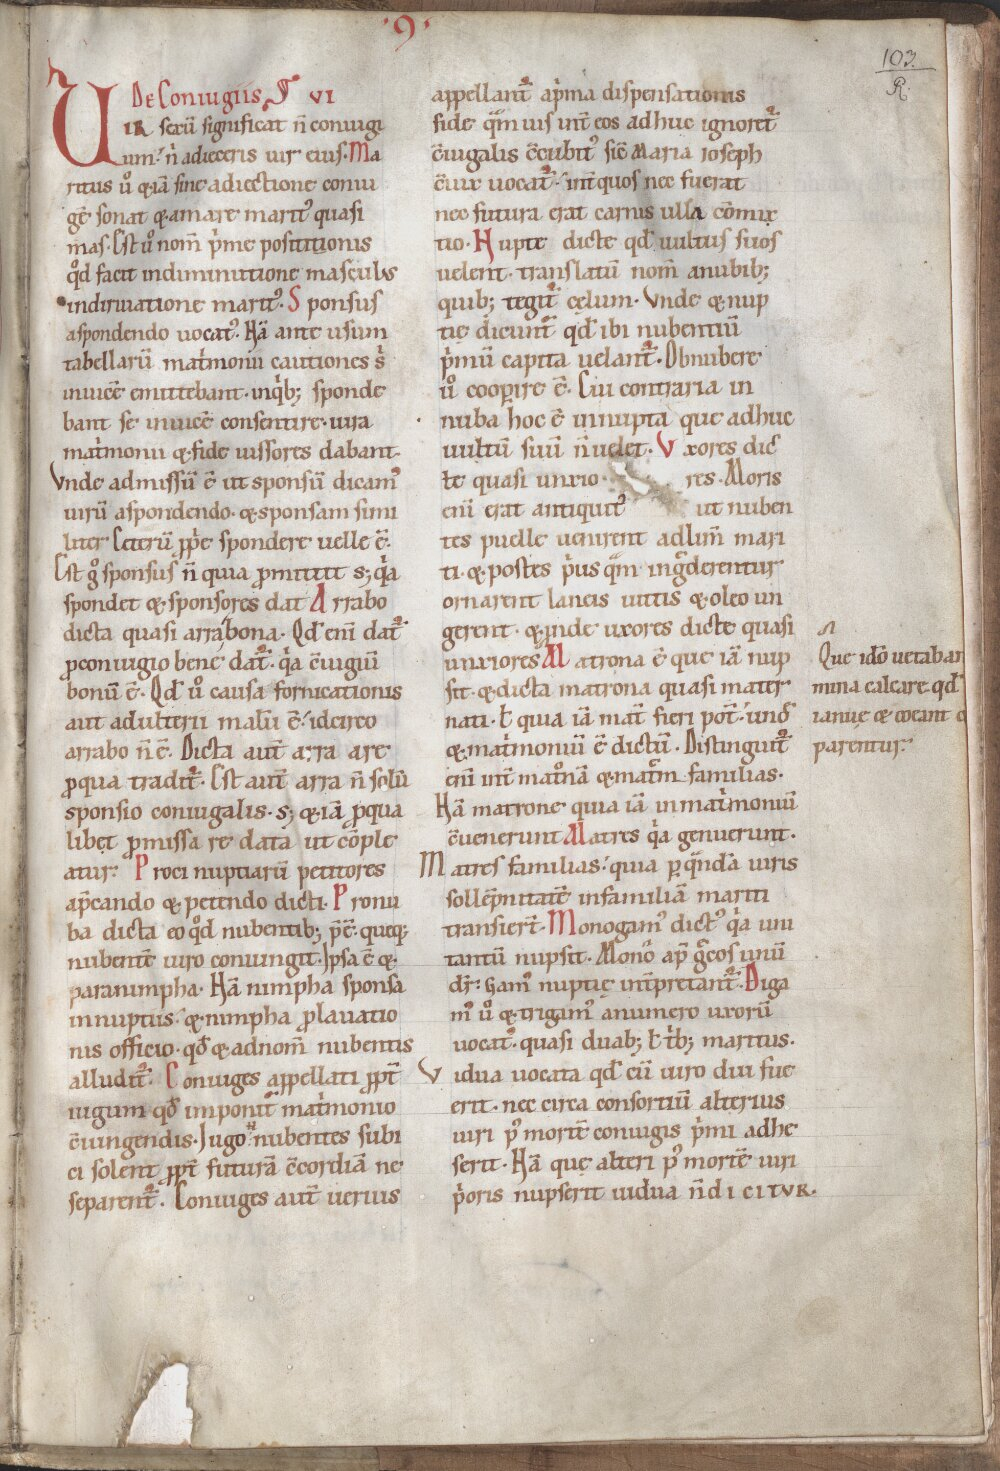 ·9·
103.
R.
De Coniugiis. VI
VIR sexū significat n̄ coniugi
um.' n̍ adieceris uir eius. Ma
ritus ů & iā sine adiectione coniu
gē sonat & amare marit᾿ quasi
mas. Est ů nom̄ p̍me positionis
qͦd facit indiminutione masculus
indiriuatione marit᾿. Sponsus
aspondendo uocat᾿. Nā ante usum
tabellarū mat̍monii cautiones s̍
inuicē emittebant. inq̍b; sponde
bant se inuicē consentire. iura
mat̍monii & fide iussores dabant.
Vnde admissū ē ut sponsū dicam᾿
uirū aspondendo. & sponsam simi
liter Ceterū ꝓp̍e spondere uelle ē.
Est gͦ sponsus n̄ quia ꝓmittit s; q̍a
spondet & sponsores dat Arrabo
dicta quasi arrabona. Qd̄ eni dat᷑
ꝓconiugio bene dat᷑. q̍a c̄iugiū
bonū ē. Qd̄ ů causa fornicationis
aut adulterii malū ē.' idcirco
arrabo n̄ ē. Dicta aut̄ arra a re
ꝓqua tradit᷑. Est aut̄ arra n̄ solū
sponsio coniugalis. s; & iā ꝓqua
libet ꝓmissa re data ut cōple
atur. Proci nuptiarū petitores
ap̄cando & petendo dicti. Pronu
ba dicta eo qͦd nubentib; p̄ē. queq;
nubentē uiro coniungit. Ipsa ē &
paranimpha. Nā nimpha sponsa
innuptiis.' & nimpha ꝓlauatio
nis officio. qd̄ & adnom̄ nubentis
alludit᷑. Coniuges appellati ꝓpt̄
iugum qd̄ imponit᷑ mat̍monio
c̄iungendis. Iugo nubentes subi
ci solent ꝓpt̄ futurā c̄cordiā ne
separent᷑. Coniuges aut̄ uerius
appellant᷑ ap̍ma dispensationis
fide qͣm uis int̄ eos adhuc ignoret᷑
c̄iugalis c̄cubit᾿ sic̄ Maria ioseph
c̄iux uocat᷑.' int̄quos nec fuerat
nec futura erat carnis ulla cōmix
tio. Nupte dicte qd̄ uultus suos
uelent. translatū nom̄ anubib;
quib; tegit᷑ cęlum. Vnde & nup
tię dicunt᷑ qd̄ ibi nubentiū
p̍mū capita uelant᷑. Obnubere
ů cooperire ē. Cui contraria in
nuba hoc ē innupta que adhuc
uultū suū n̄ uelet. Vxores dic̄
te quasi unxio res. Moris
eni erat antiquit᾿ ut nuben
tes puelle uenirent adlim̄ mari
ti. & postes p̍us qͣm ing̍derentur
ornarent laneis uittis & oleo un
gerent. & inde uxores dicte quasi
unxiores Matrona ē que iā nup
sit. & dicta matrona quasi mater
nati. ł quia iā mat̄ fieri pot̄.' und̄
& mat̍moniū ē dictū. Distinguit᷑
eni int̄ matͦnā & mat̄m familias.
Nā matrone quia iā inmat̍moniū
c̄uenerunt Matres q̍a genuerunt.
Matres familias.' quia ꝑ qͣnda uiris
sollēpnitatē infamiliā mariti
transiert̄. Monogam᾿ dict᾿ q̍a uni
tantū nupsit. Monͦ ap̄ g̍cos unū
dr̄. Gam᾿ nuptię int̄pretant᷑. Diga
m᾿ ů & trigam᾿ anumero uxorū
uocat᾿. quasi duab; ł t̍b; maritus.
Vidua uocata qd̄ cū uiro diu fue
erit. nec circa consortiū alterius
uiri p᾿ mortē coniugis p̍mi adhe
serit. Nā que alteri p᾿ mortē uiri
p̍oris nupserit uidua n̄ diciTVR.
Que idō uetaban
mina calcare qd̄
ianue & coeant
parentur.